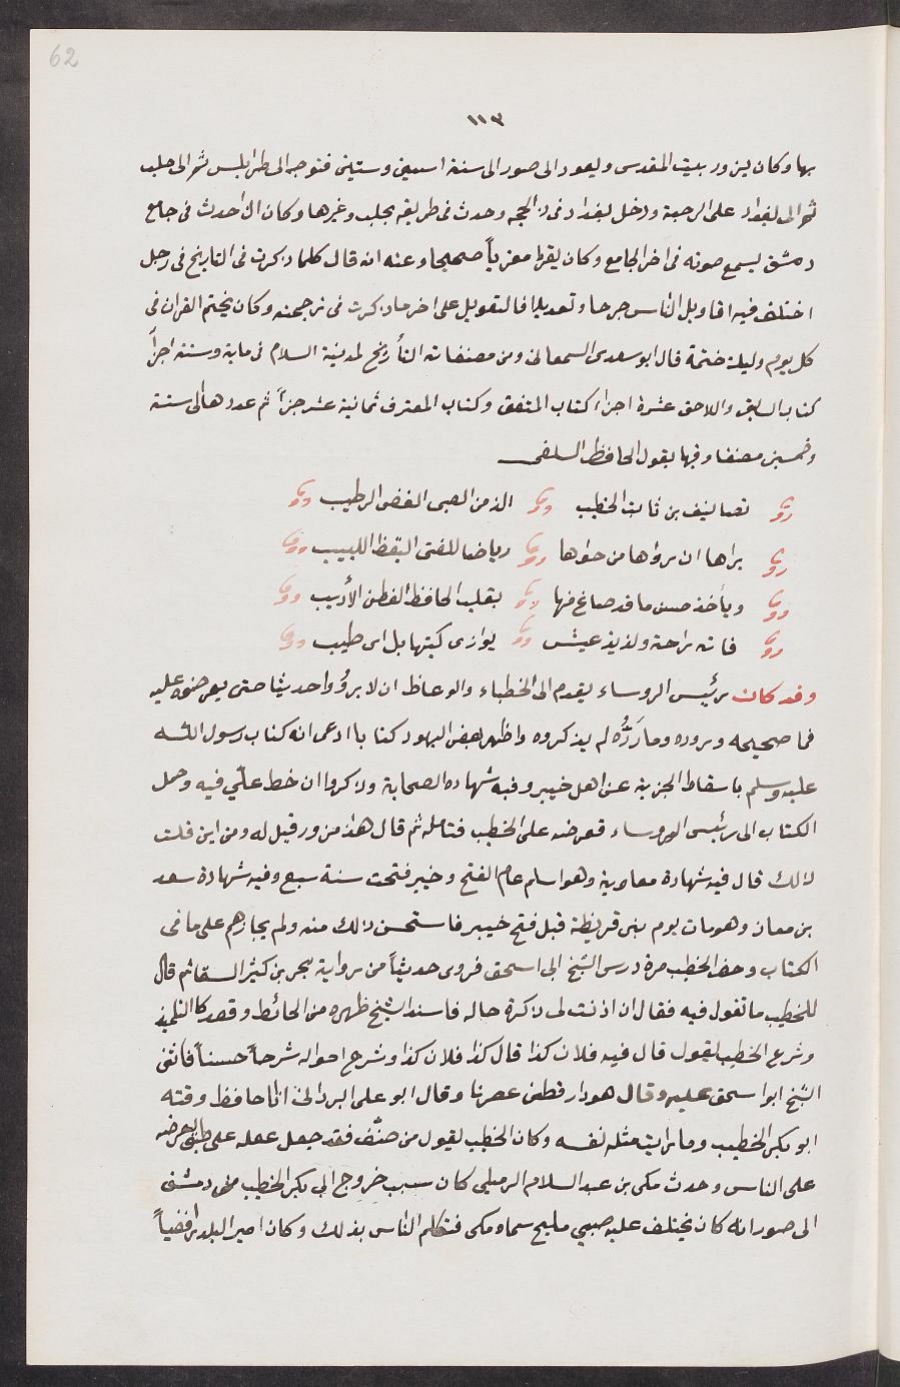 62
١١٣
بها وكان يزور بيت المقدس ويعود الى صور الى سنة اسبين وستين فتوجه الى طرابلس ثم الى حلب
ثم الى بغداد على الرحبة ودخل بغداد فى ذى الحجه وحدث فى طريقه بحلب وغيرها وكان اذا حدث فى جامع
دمشق يسمع صوته فى اخر الجامع وكان يقرا معربا صحيحا وعنه انه قال كلما ذكرت فى التاريخ فى رجل
اختلف فيه اقاويل الناس جرحا وتعديلا فالتعويل على اخر ما ذكرت فى ترجمته وكان يختم القران فى
كل يوم وليلة ختمة قال ابو سعدى السمعانى ومن مصنفاته التأريخ لمدينة السلام فى ماية وستة اجزاً
كتاب السابق واللاحق عشرة اجزاء كتاب المتفق وكتاب المعترف ثمانية عشر جزاً ثم عددها الى ستة
وخمسين مصنفا وفيها يقول الحافظ السلفى
تصانيف بن ثابت الخطيب الذ من الصبى الغض الرطيب
يراها ان رواها من حواها رياضا للفتى اليقظ اللبيب
ويأخذ حسن ما قد صاغ فيها بقلب الحافظ الفطن الأديب
فاته راحة ولذيذ عيش يوازى كتبها بل اى طيب
وقد كان رئيس الروساء يقدم الى الخطباء والوعاظ ان لا يرؤوا حديثا حتى يعرضوه عليه
فما صحيحه وروده وما رَدُّه لم يذكروه واظهر بعض اليهود كتابا ادعى انه كتاب رسول الله
عليه وسلم باسقاط الجزية عن اهل خيبر وفيه شهاده الصحابة وذكروا ان خط علّي فيه وحمل
الكتاب الى رئيس الروساء فعرضه على الخطيب فتامله ثم قال هذا مزور قيل له ومن اين قلت
ذالك قال فيه شهادة معاوية وهو اسلم عام الفتح وخيبر فتحت سنة سبع وفيه شهادة سعد
بن معاذ وهو مات يوم بنى قريظة قبل فتح خيبر فاستحسن ذالك منه ولم يجازهم على ما فى
الكتاب وحضر الخطيب مرة درس الشيخ ابى اسحق فروى حديثاً من رواية بحر بن كنيز السقا ثم قال
للخطيب ما تقول فيه فقال ان اذنت لى ذكرة حاله فاسند الشيخ ظهره من الحائط وقعد كالتلميذ
وشرع الخطيب يقول قال فيه فلان كذا قال كذا فلان كذا وشرح احواله شرحاً حسناً فاثنى
الشيخ ابوا سحق عليه وقال هو دارقطنى عصرنا وقال ابو على البردانى انا حافظ وقته
ابو بكر الخطيب وما رايت مثله نفسه وكان الخطيب يقول من صنّف فقد جعل عقله على طبق يعرضه
على الناس وحدث مكى بن عبد السلام الرميلى كان سبب خروج ابى بكر الخطيب من دمشق
الى صور انه كان يختلف عليه صبى مليح سماه مكى فتكلم الناس بذلك وكان امير البلد رافضياً